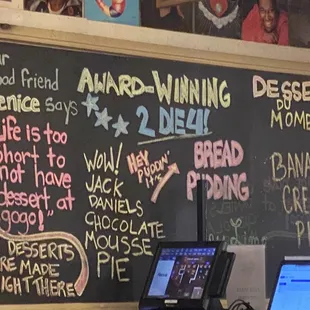 ur
od friend
enice says
Life is too
short to
not have
dessert at
gogo!"
DESSERTS
RE MADE
RIGHT HERE
AWARD-WINNING
2 DIE 4!
WOW!
JACK
DANIELS
CHOCOLATE
MOUSSE
PIE
HEY
PUDDIN'
IT'S
BREAD
PUDDING
DESSE
DU
MOME
BANA
CRE
PIE